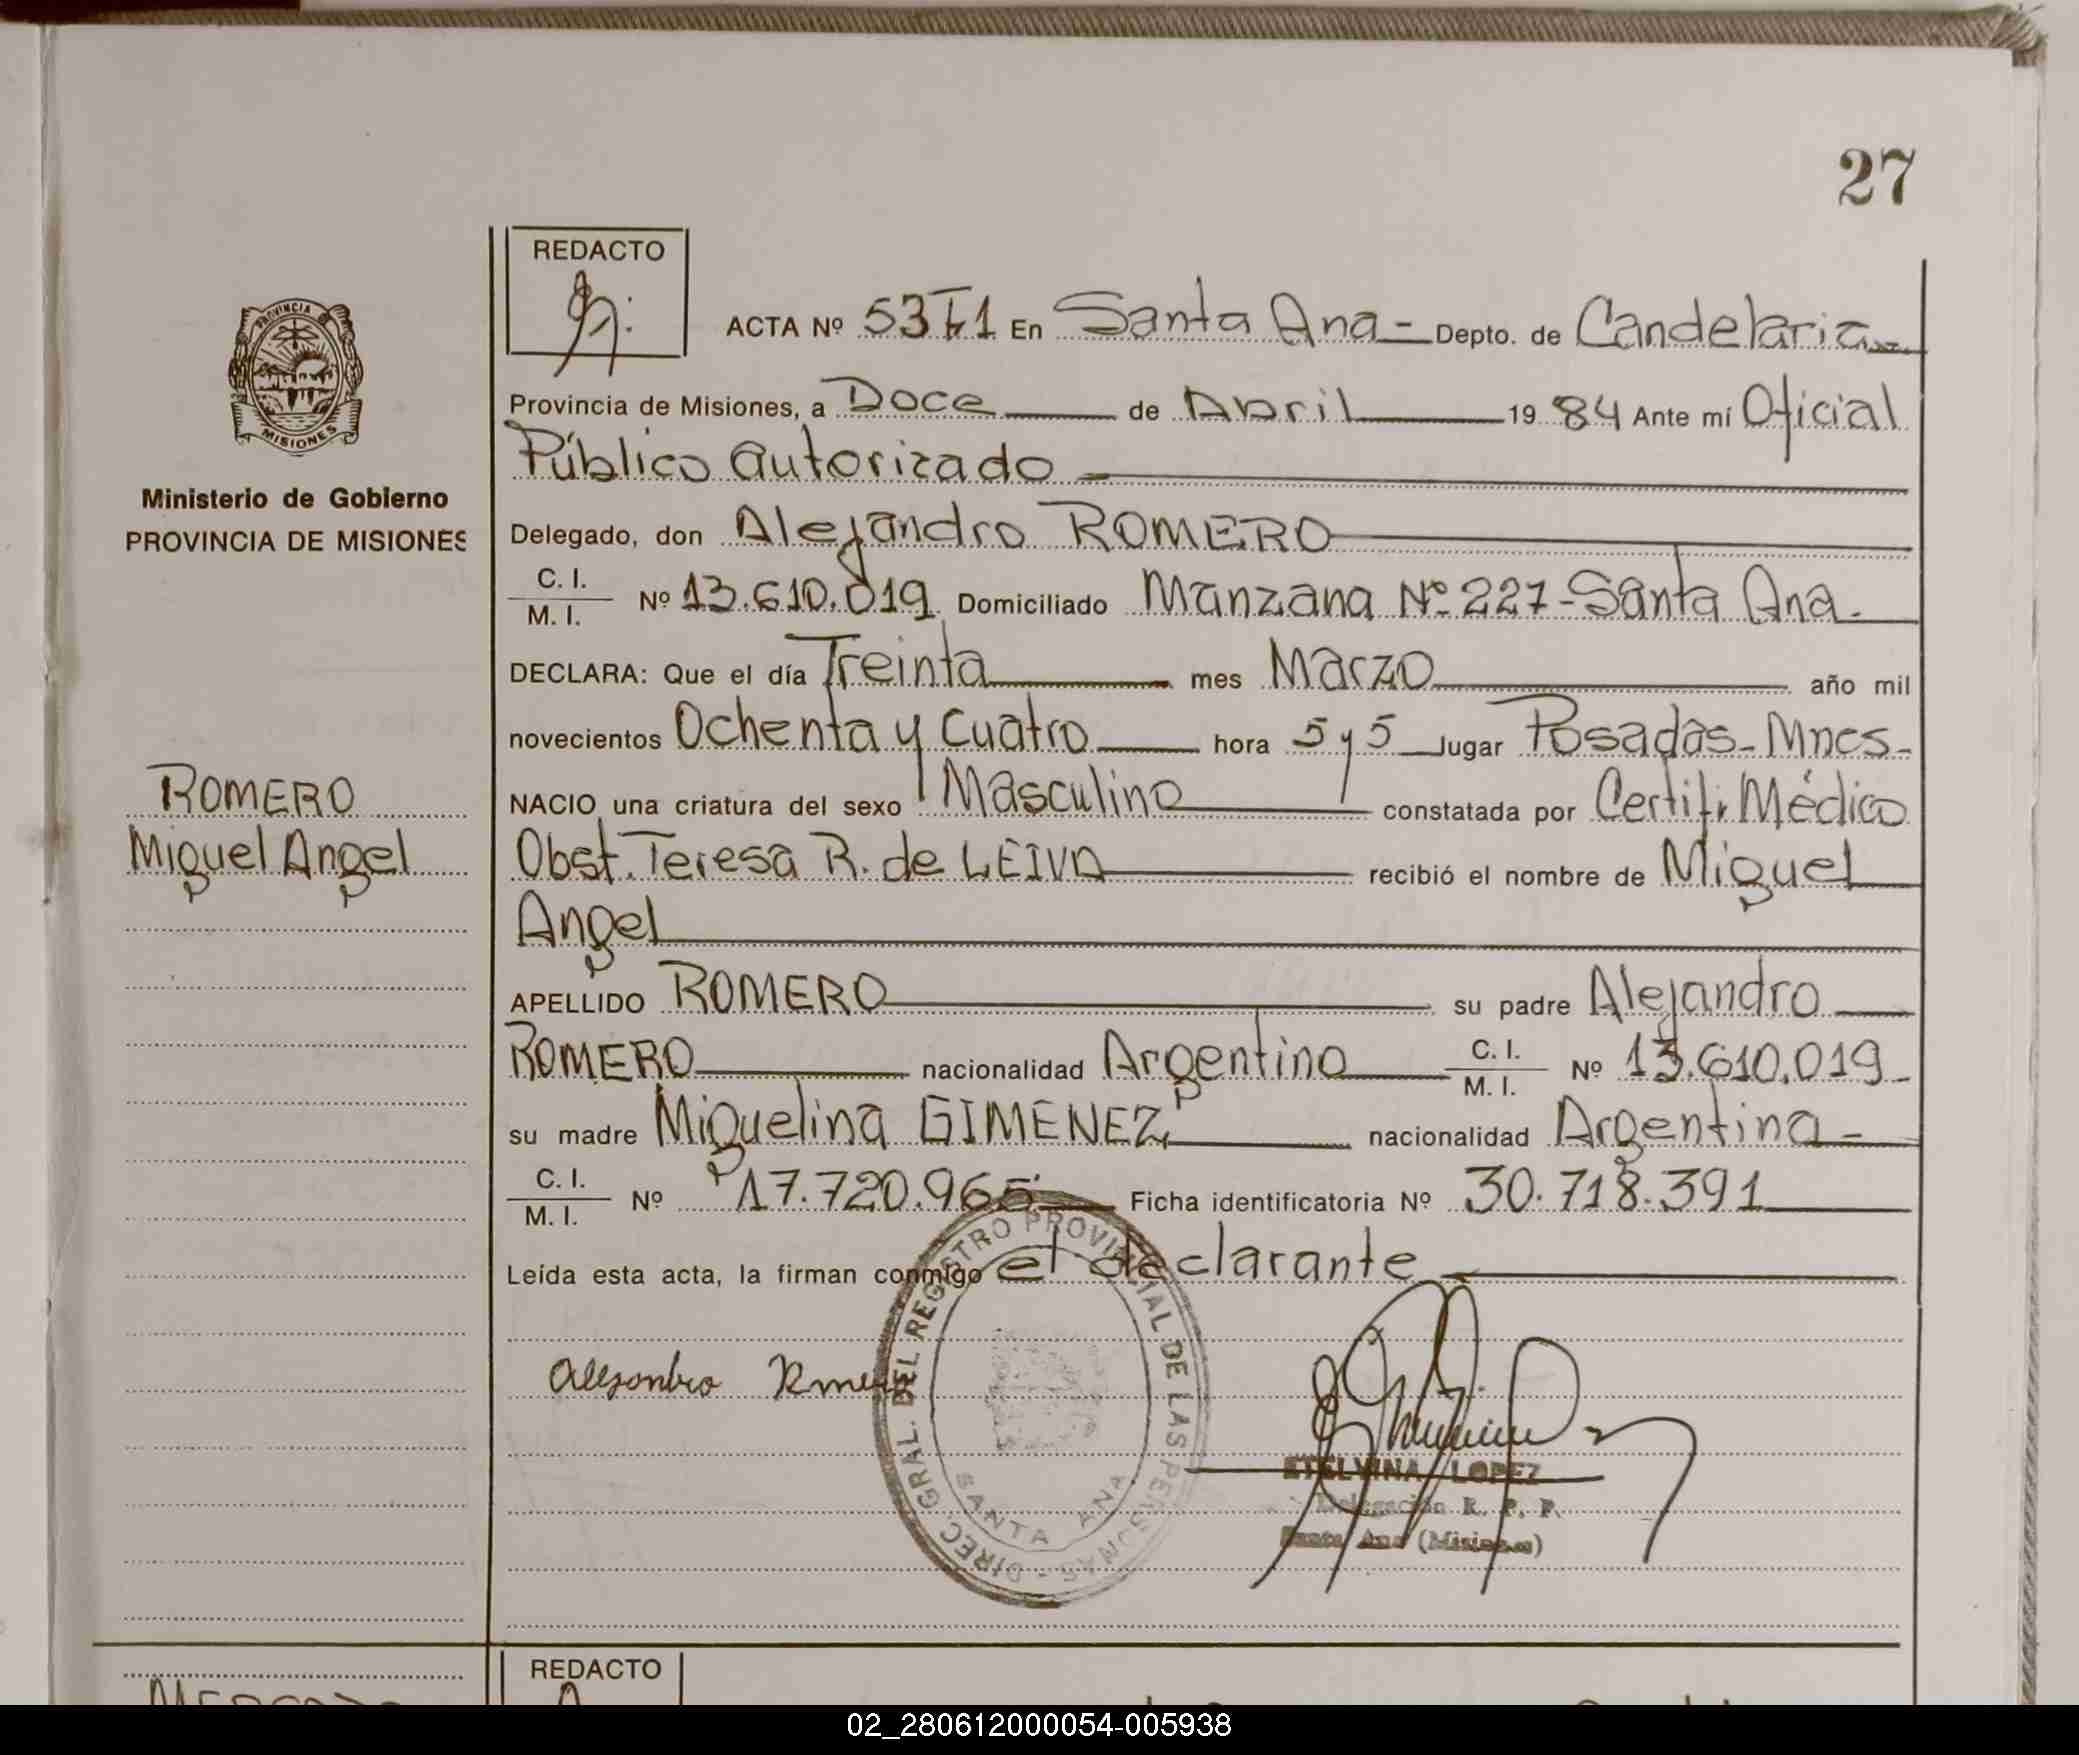 27
REDACTO
ACTA Nº 53 T1 En Santa Ana - Depto. de Candelaria
Provincia de Misiones, a Doce de Abril 19 84 Ante mí Oficial
Público autorizado
Delegado, don Alejandro ROMERO
C. I.
M. I. Nº 13.610.019 Domiciliado Manzana Nº 227 - Santa Ana.
DECLARA: Que el día Treinta mes Marzo año mil
novecientos Ochenta y Cuatro hora 5 y 5 lugar Posadas - Mnes -
NACIO una criatura del sexo Masculino constatada por Certif. Médico
Obst. Teresa R. de LEIVA recibió el nombre de Miguel
Angel
APELLIDO ROMERO su padre Alejandro
ROMERO nacionalidad Argentino C. I. M. I. Nº 13.610.019 -
su madre Miguelina GIMENEZ nacionalidad Argentina -
C. I.
M. I. Nº 17.720.965 Ficha identificatoria Nº 30.718.391
Leída esta acta, la firman conmigo el declarante
PROVINCIA
MISIONES
Ministerio de Gobierno
PROVINCIA DE MISIONES
ROMERO
Miguel Angel
DIREC. GRAL. DEL REGISTRO PROVINCIAL DE LAS PERSONAS -
SANTA ANA
ETELVINA LOPEZ
Delegación R. P. P.
Santa Ana (Misiones)
REDACTO
02_280612000054-005938